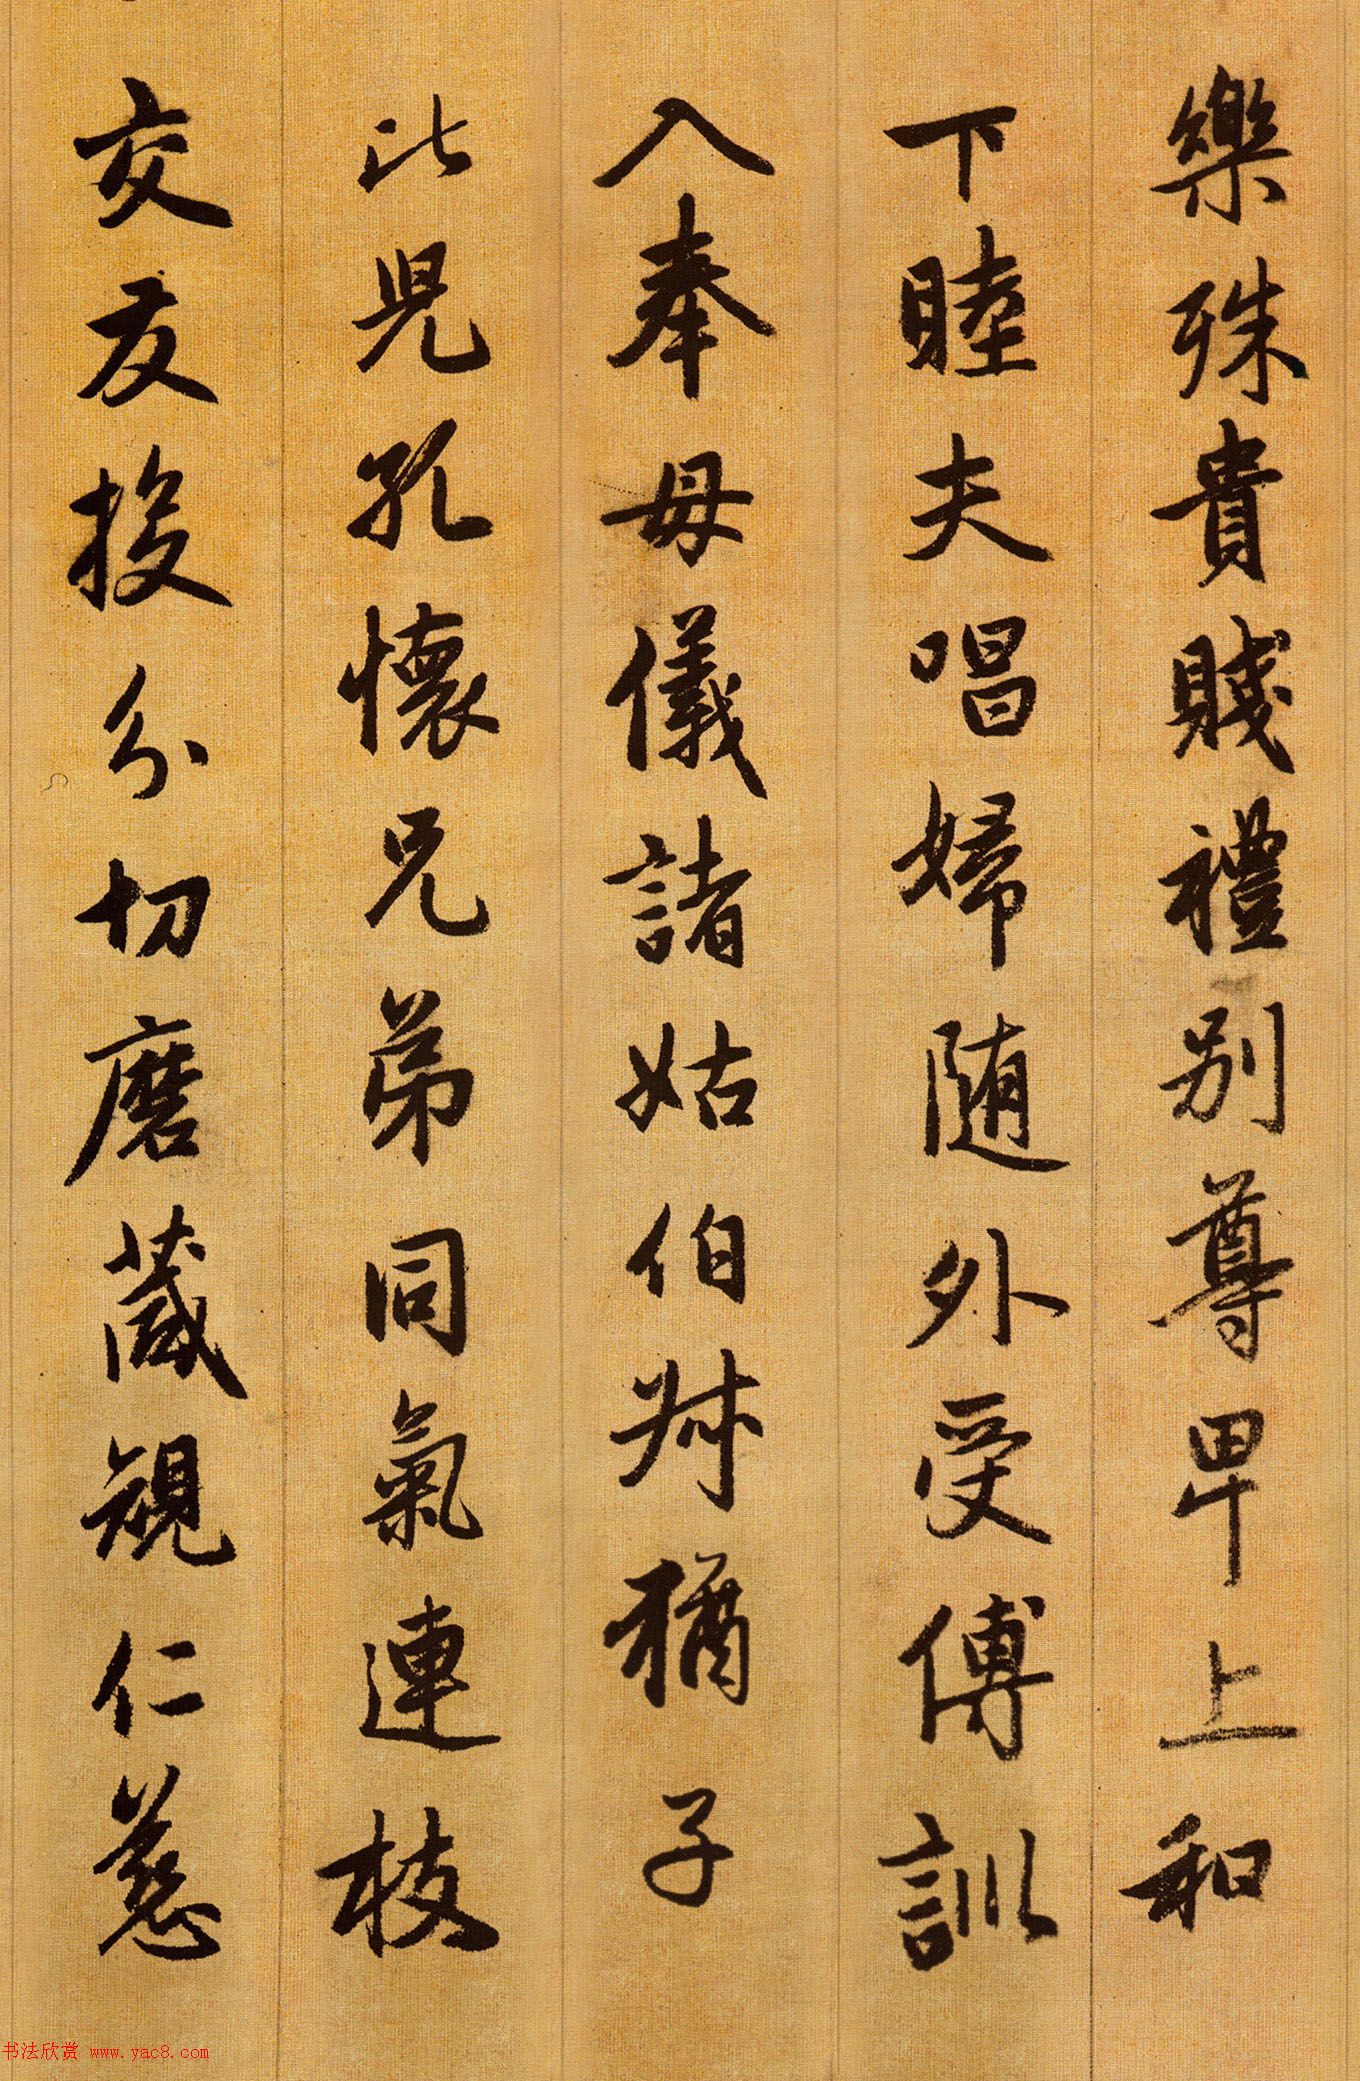 樂殊貴賤禮別尊卑上和
下睦夫唱婦随外受傅訓
入奉母儀諸姑伯叔猶子
比兒孔懷兄弟同氣連枝
交友投分切磨葴規仁慈
书法欣赏 www.yac8.com